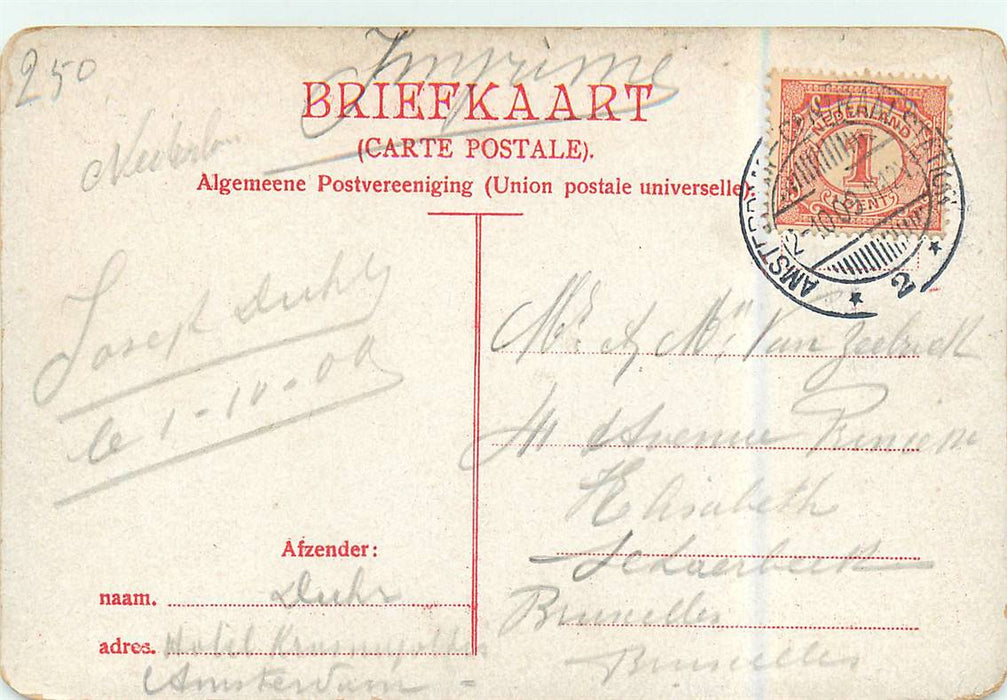 250
Imprimé
BRIEFKAART
(CARTE POSTALE).
Algemeene Postvereeniging (Union postale universelle).
NEDERLAND
1
CENT
AMSTERDAM
2
Joseph Duhr
le 1-10-09
Mr & Mme Van
Avenue
Elisabeth
Schaerbeek
Bruxelles
Bruxelles
Afzender:
naam. Duhr
adres. Hotel
Amsterdam